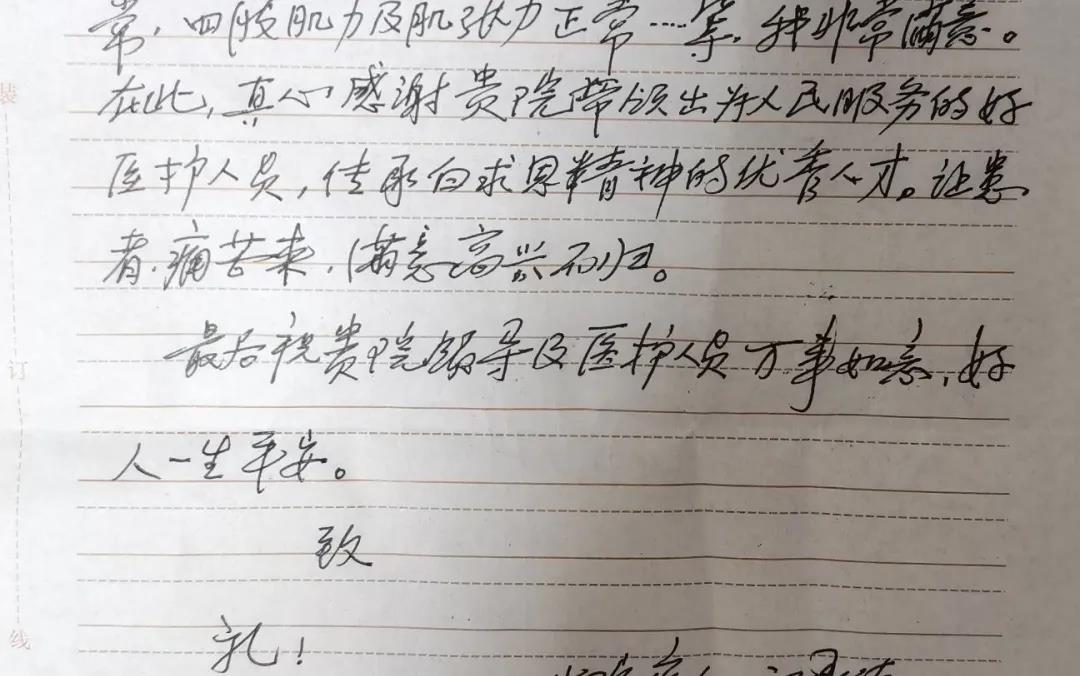 常,四肢肌力及肌张力正常……等,我非常满意。
在此,真心感谢贵院带领出为人民服务的好
医护人员,传承白求恩精神的优秀人才。让患
者.痛苦来,满意高兴而归。
最后祝贵院领导及医护人员万事如意,好
人一生平安。
致
礼!
装
订
线